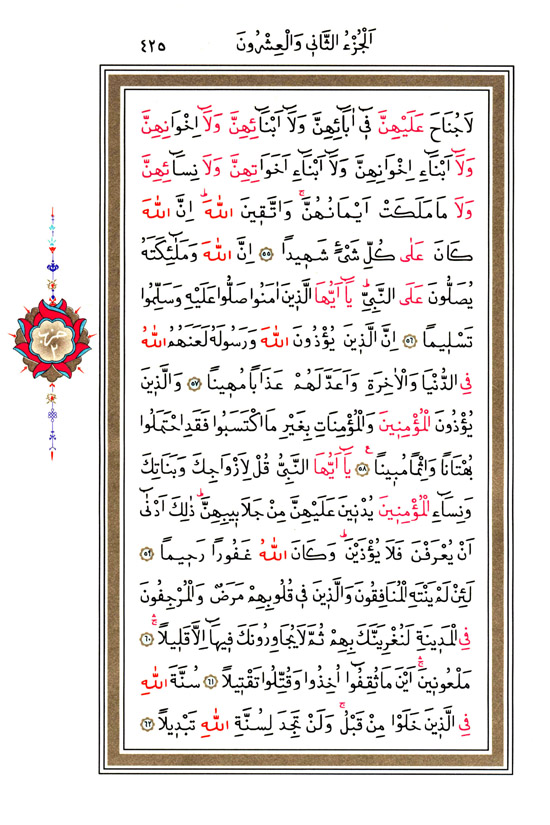 اَلْجُزْءُ الثَّانٖي وَالْعِشْرُونَ
٤٢٥
لَا جُنَاحَ عَلَيْهِنَّ فٖٓي اٰبَٓائِهِنَّ وَلَٓا اَبْنَٓائِهِنَّ وَلَٓا اِخْوَانِهِنَّ
وَلَٓا اَبْنَٓاءِ اِخْوَانِهِنَّ وَلَٓا اَبْنَٓاءِ اَخَوَاتِهِنَّ وَلَا نِسَٓائِهِنَّ
وَلَا مَا مَلَكَتْ اَيْمَانُهُنَّۚ وَاتَّقٖينَ اللّٰهَؕ اِنَّ اللّٰهَ
كَانَ عَلٰى كُلِّ شَيْءٍ شَهٖيدًا ﴿٥٥﴾ اِنَّ اللّٰهَ وَمَلٰٓئِكَتَهُ
يُصَلُّونَ عَلَى النَّبِيِّؕ يَٓا اَيُّهَا الَّذٖينَ اٰمَنُوا صَلُّوا عَلَيْهِ وَسَلِّمُوا
تَسْلٖيمًا ﴿٥٦﴾ اِنَّ الَّذٖينَ يُؤْذُونَ اللّٰهَ وَرَسُولَهُ لَعَنَهُمُ اللّٰهُ
فِي الدُّنْيَا وَالْاٰخِرَةِ وَاَعَدَّ لَهُمْ عَذَابًا مُهٖينًا ﴿٥٧﴾ وَالَّذٖينَ
يُؤْذُونَ الْمُؤْمِنٖينَ وَالْمُؤْمِنَاتِ بِغَيْرِ مَا اكْتَسَبُوا فَقَدِ احْتَمَلُوا
بُهْتَانًا وَاِثْمًا مُبٖينًاࣖ ﴿٥٨﴾ يَٓا اَيُّهَا النَّبِيُّ قُلْ لِاَزْوَاجِكَ وَبَنَاتِكَ
وَنِسَٓاءِ الْمُؤْمِنٖينَ يُدْنٖينَ عَلَيْهِنَّ مِنْ جَلَابٖيبِهِنَّؕ ذٰلِكَ اَدْنٰٓى
اَنْ يُعْرَفْنَ فَلَا يُؤْذَيْنَؕ وَكَانَ اللّٰهُ غَفُورًا رَحٖيمًا ﴿٥٩﴾
لَئِنْ لَمْ يَنْتَهِ الْمُنَافِقُونَ وَالَّذٖينَ فٖي قُلُوبِهِمْ مَرَضٌ وَالْمُرْجِفُونَ
فِي الْمَدٖينَةِ لَنُغْرِيَنَّكَ بِهِمْ ثُمَّ لَا يُجَاوِرُونَكَ فٖيهَٓا اِلَّا قَلٖيلًاۚۛ ﴿٦٠﴾
مَلْعُونٖينَۚۛ اَيْنَ مَا ثُقِفُٓوا اُخِذُوا وَقُتِّلُوا تَقْتٖيلًا ﴿٦١﴾ سُنَّةَ اللّٰهِ
فِي الَّذٖينَ خَلَوْا مِنْ قَبْلُۚ وَلَنْ تَجِدَ لِسُنَّةِ اللّٰهِ تَبْدٖيلًا ﴿٦٢﴾